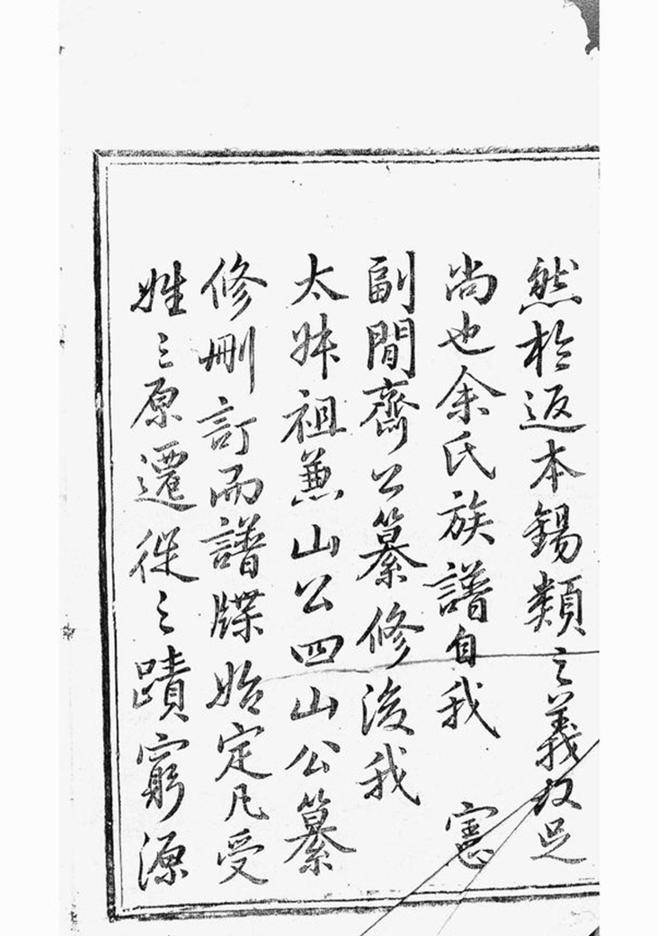 然於返本錫類之義攷足
尚也余氏族譜自我 憲
副間齊公纂修後我
太姝祖蒹山公四山公纂
修刪訂而譜牒始定凡受
姓之原遷徙之蹟窮源